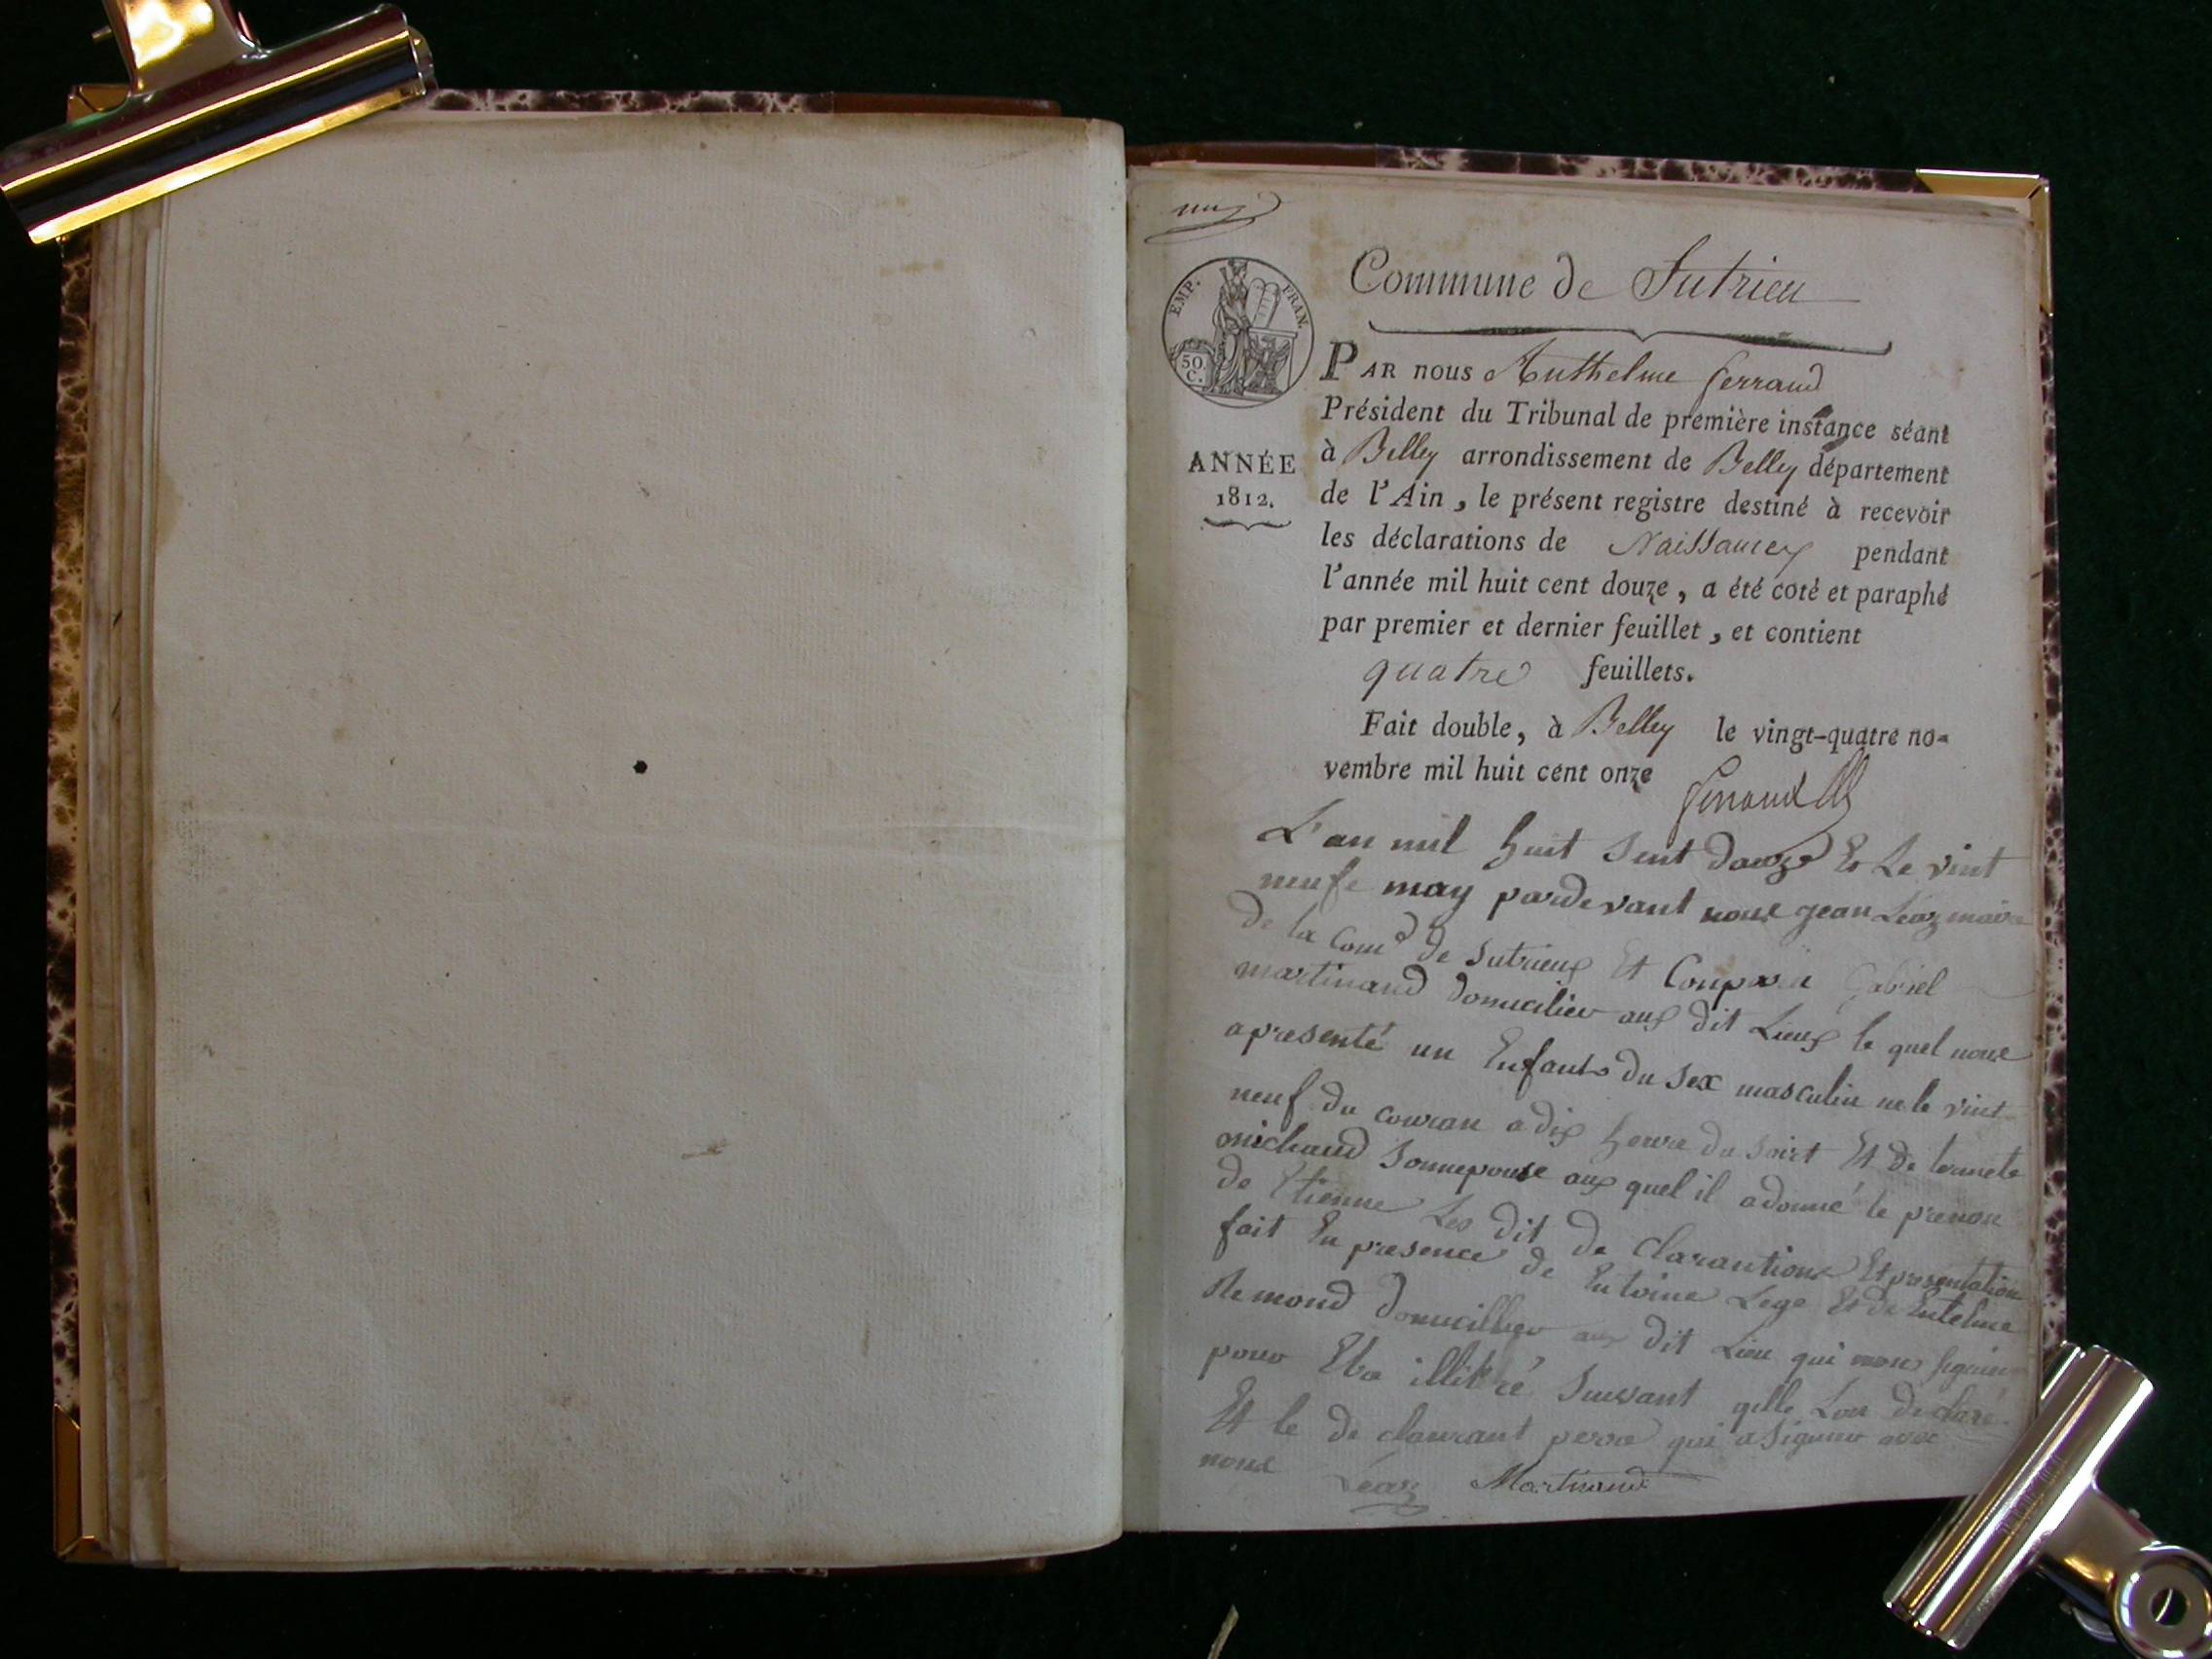 Commune de Sutrieu
EMP. FRAN.
50
C.
PAR nous Anthelme ferrand
Président du Tribunal de première instance séant
ANNÉE
1812.
à Belley arrondissement de Belley département
de l'Ain, le présent registre destiné à recevoir
les déclarations de Naissances pendant
l'année mil huit cent douze, a été coté et paraphé
par premier et dernier feuillet, et contient
quatre feuillets.
Fait double, à Belley le vingt-quatre no-
vembre mil huit cent onze
L'an mil huit Sent douze Et Le vint
neufe may pardevant nous jean Léaz maire
de la Com de Sutrieux Et Gabriel
martinand domicilier aux dit Lieux le quel nous
apresenté un Enfants du Sex masculin ne le vint
neuf du couran a dix heure du Soirt Et de
michaud Sonnepouse aux quel il adonné le prenon
de Etienne Les dit de clarantions Et presentation
fait En presence de Entoine Lege Et de Entelme
Remond domicillier aux dit Lieu qui
pour illitéré Suivant qelle Lon de claré
Et le de clarant perre qui a Signer avec
nous Léaz Martinand